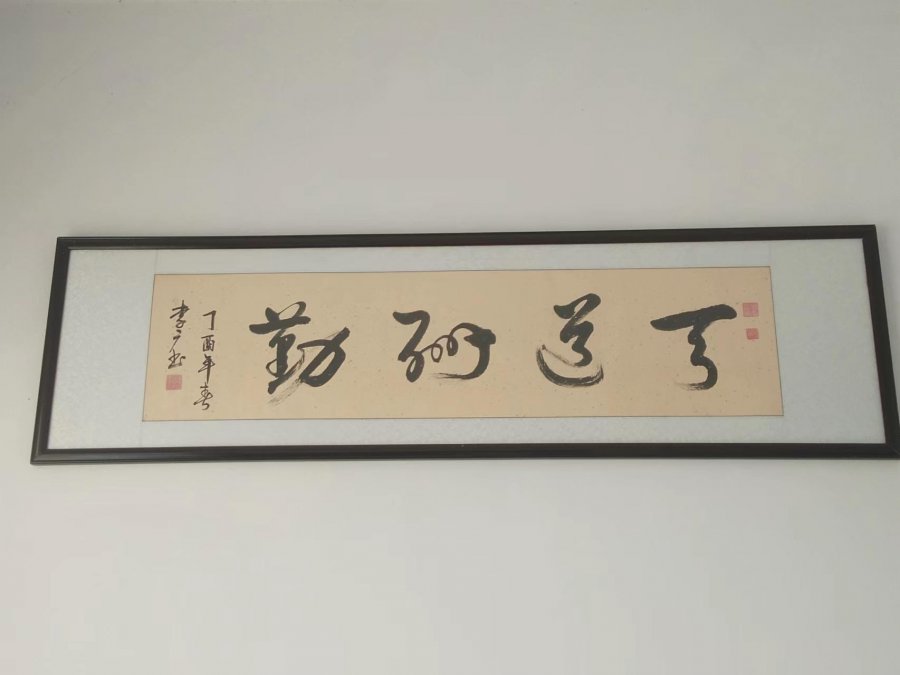 天道酬勤
丁酉年春
李